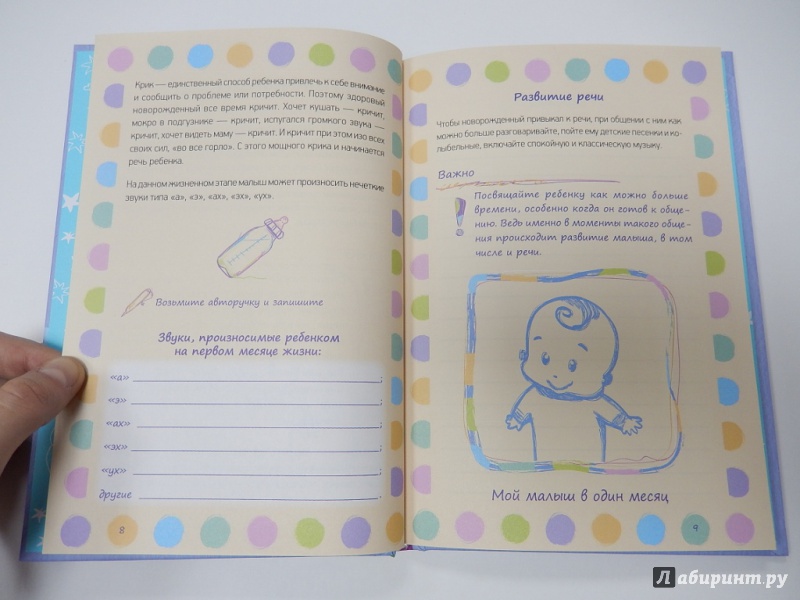 Крик — единственный способ ребенка привлечь к себе внимание
и сообщить о проблеме или потребности. Поэтому здоровый
новорожденный все время кричит. Хочет кушать — кричит,
мокро в подгузнике — кричит, испугался громкого звука —
кричит, хочет видеть маму — кричит. И кричит при этом изо всех
своих сил, «во все горло». С этого мощного крика и начинается
речь ребенка.
На данном жизненном этапе малыш может произносить нечеткие
звуки типа «а», «э», «ах», «эх», «ух».
Возьмите авторучку и запишите
Звуки, произносимые ребенком
на первом месяце жизни:
«а» ;
«э» ;
«ах» ;
«эх» ;
«ух» ;
другие .
8
Развитие речи
Чтобы новорожденный привыкал к речи, при общении с ним как
можно больше разговаривайте, пойте ему детские песенки и ко-
лыбельные, включайте спокойную и классическую музыку.
Важно
! Посвящайте ребенку как можно больше
времени, особенно когда он готов к обще-
нию. Ведь именно в моменты такого обще-
ния происходит развитие малыша, в том
числе и речи.
Мой малыш в один месяц
9
Лабиринт.ру